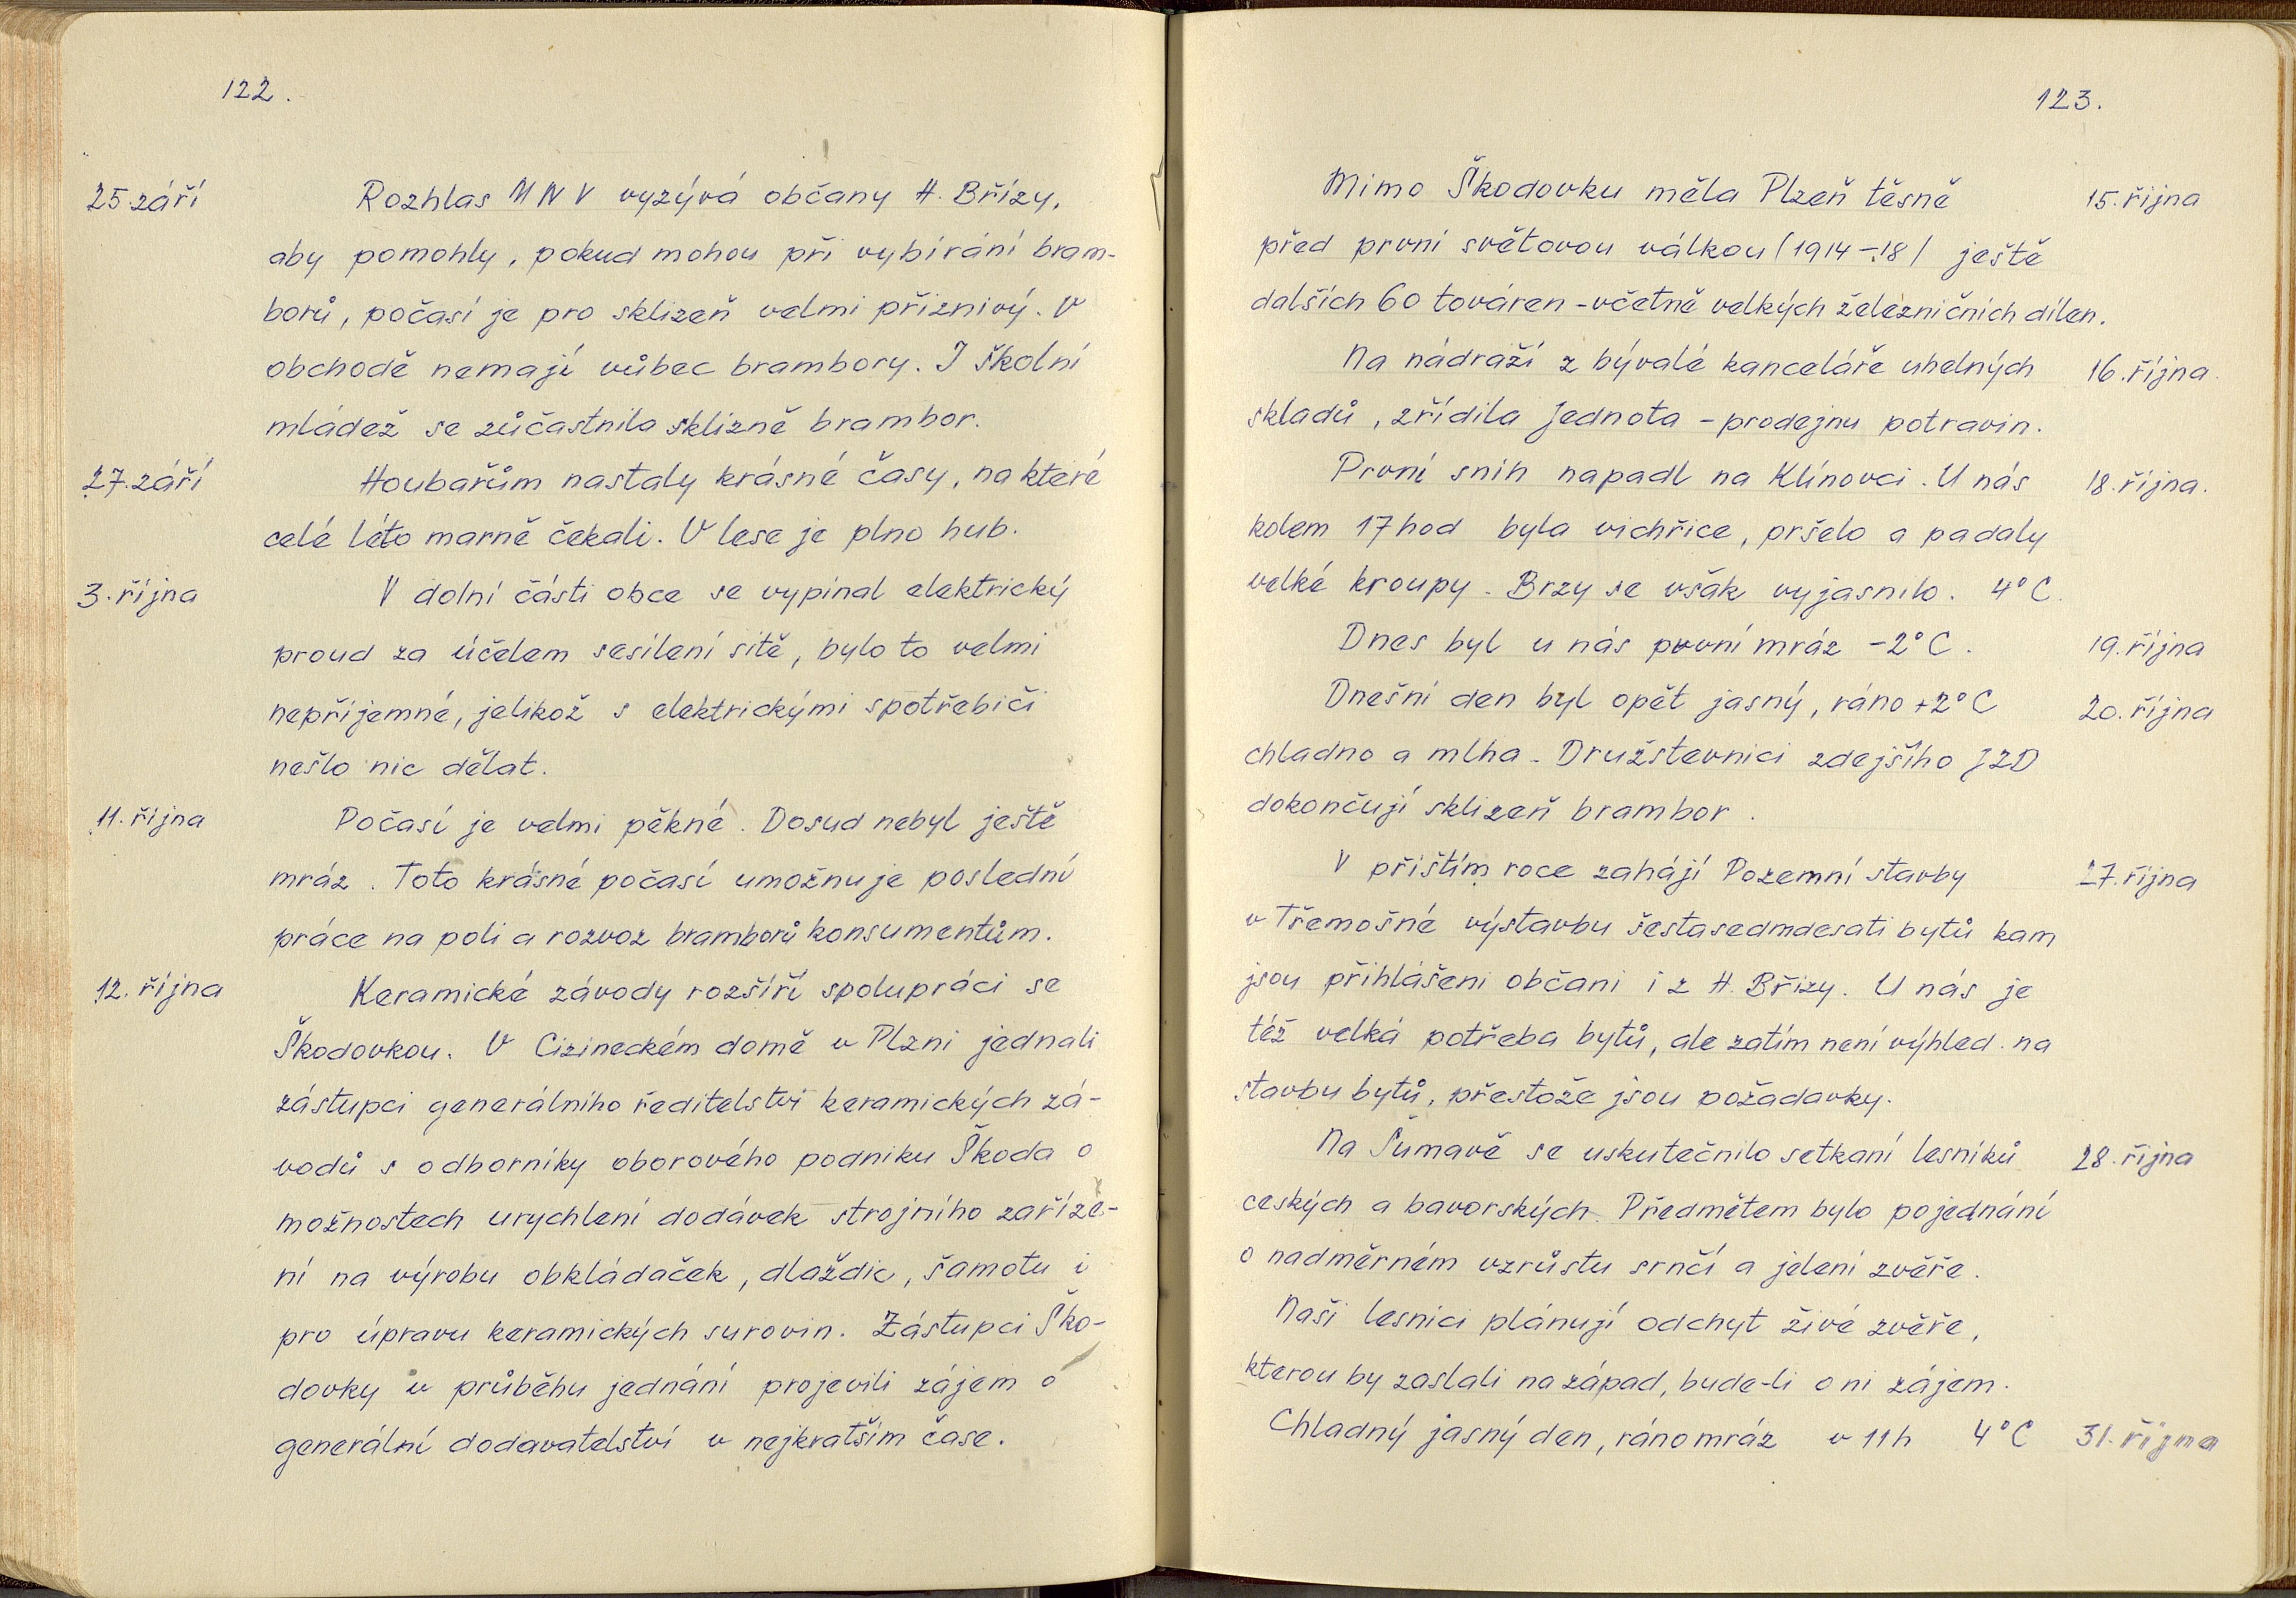 122.
25. září Rozhlas MNV vyzývá občany H. Břízy,
aby pomohly, pokud mohou při vybírání bram-
borů, počasí je pro sklizeň velmi příznivý. V
obchodě nemají vůbec brambory. I školní
mládež se zůčastnila sklizně brambor.
27. září Houbařům nastaly krásné časy, na které
celé léto marně čekali. V lese je plno hub.
3. října V dolní části obce se vypínal elektrický
proud za účelem sesílení sítě, bylo to velmi
nepříjemné, jelikož s elektrickými spotřebiči
nešlo nic dělat.
11. října Počasí je velmi pěkné. Dosud nebyl ještě
mráz. Toto krásné počasí umožnuje poslední
práce na poli a rozvoz bramborů konsumentům.
12. října Keramické závody rozšíří spolupráci se
Škodovkou. V Cizineckém domě v Plzni jednali
zástupci generálního ředitelství keramických zá-
vodů s odborníky oborového podniku Škoda o
možnostech urychlení dodávek strojního zaříze-
ní na výrobu obkládaček, dlaždic, šamotu i
pro úpravu keramických surovin. Zástupci Ško-
dovky v průběhu jednání projevili zájem o
generální dodavatelství v nejkratším čase.
123.
Mimo Škodovku měla Plzeň těsně 15. října
před první světovou válkou /1914-18/ ještě
dalších 60 továren - včetně velkých železničních dílen.
Na nádraží z bývalé kanceláře uhelných 16. října.
skladů, zřídila Jednota - prodejnu potravin.
První sníh napadl na Klínovci. U nás 18. října.
kolem 17 hod byla vichřice, pršelo a padaly
velké kroupy. Brzy se však vyjasnilo. 4°C.
Dnes byl u nás první mráz -2°C. 19. října
Dnešní den byl opět jasný, ráno +2°C 20. října
chladno a mlha. Družstevníci zdejšího JZD
dokončují sklizeň brambor.
V příštím roce zahájí Pozemní stavby 27. října
v Třemošné výstavbu šestasedmdesáti bytů kam
jsou přihlášeni občani i z H. Břízy. U nás je
též velká potřeba bytů, ale zatím není výhled na
stavbu bytů, přestože jsou požadavky.
Na Šumavě se uskutečnilo setkaní lesníků 28. října
ceských a bavorských. Předmětem bylo pojednání
o nadměrném vzrůstu srnčí a jelení zvěře.
Naši lesníci plánují odchyt živé zvěře,
kterou by zaslali na západ, bude-li o ni zájem.
Chladný jasný den, ráno mráz v 11h 4°C 31. října